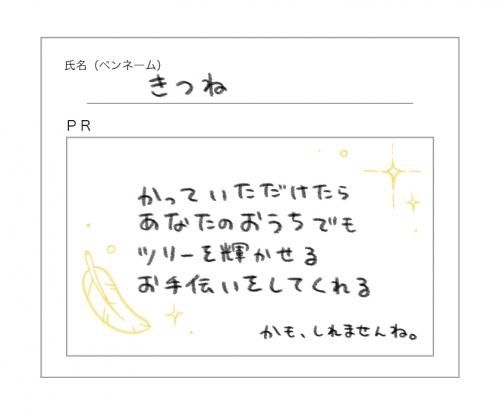 氏名（ペンネーム）
きつね
PR
かっていただけたら
あなたのおうちでも
ツリーを輝かせる
お手伝いをしてくれる
かも、しれませんね。